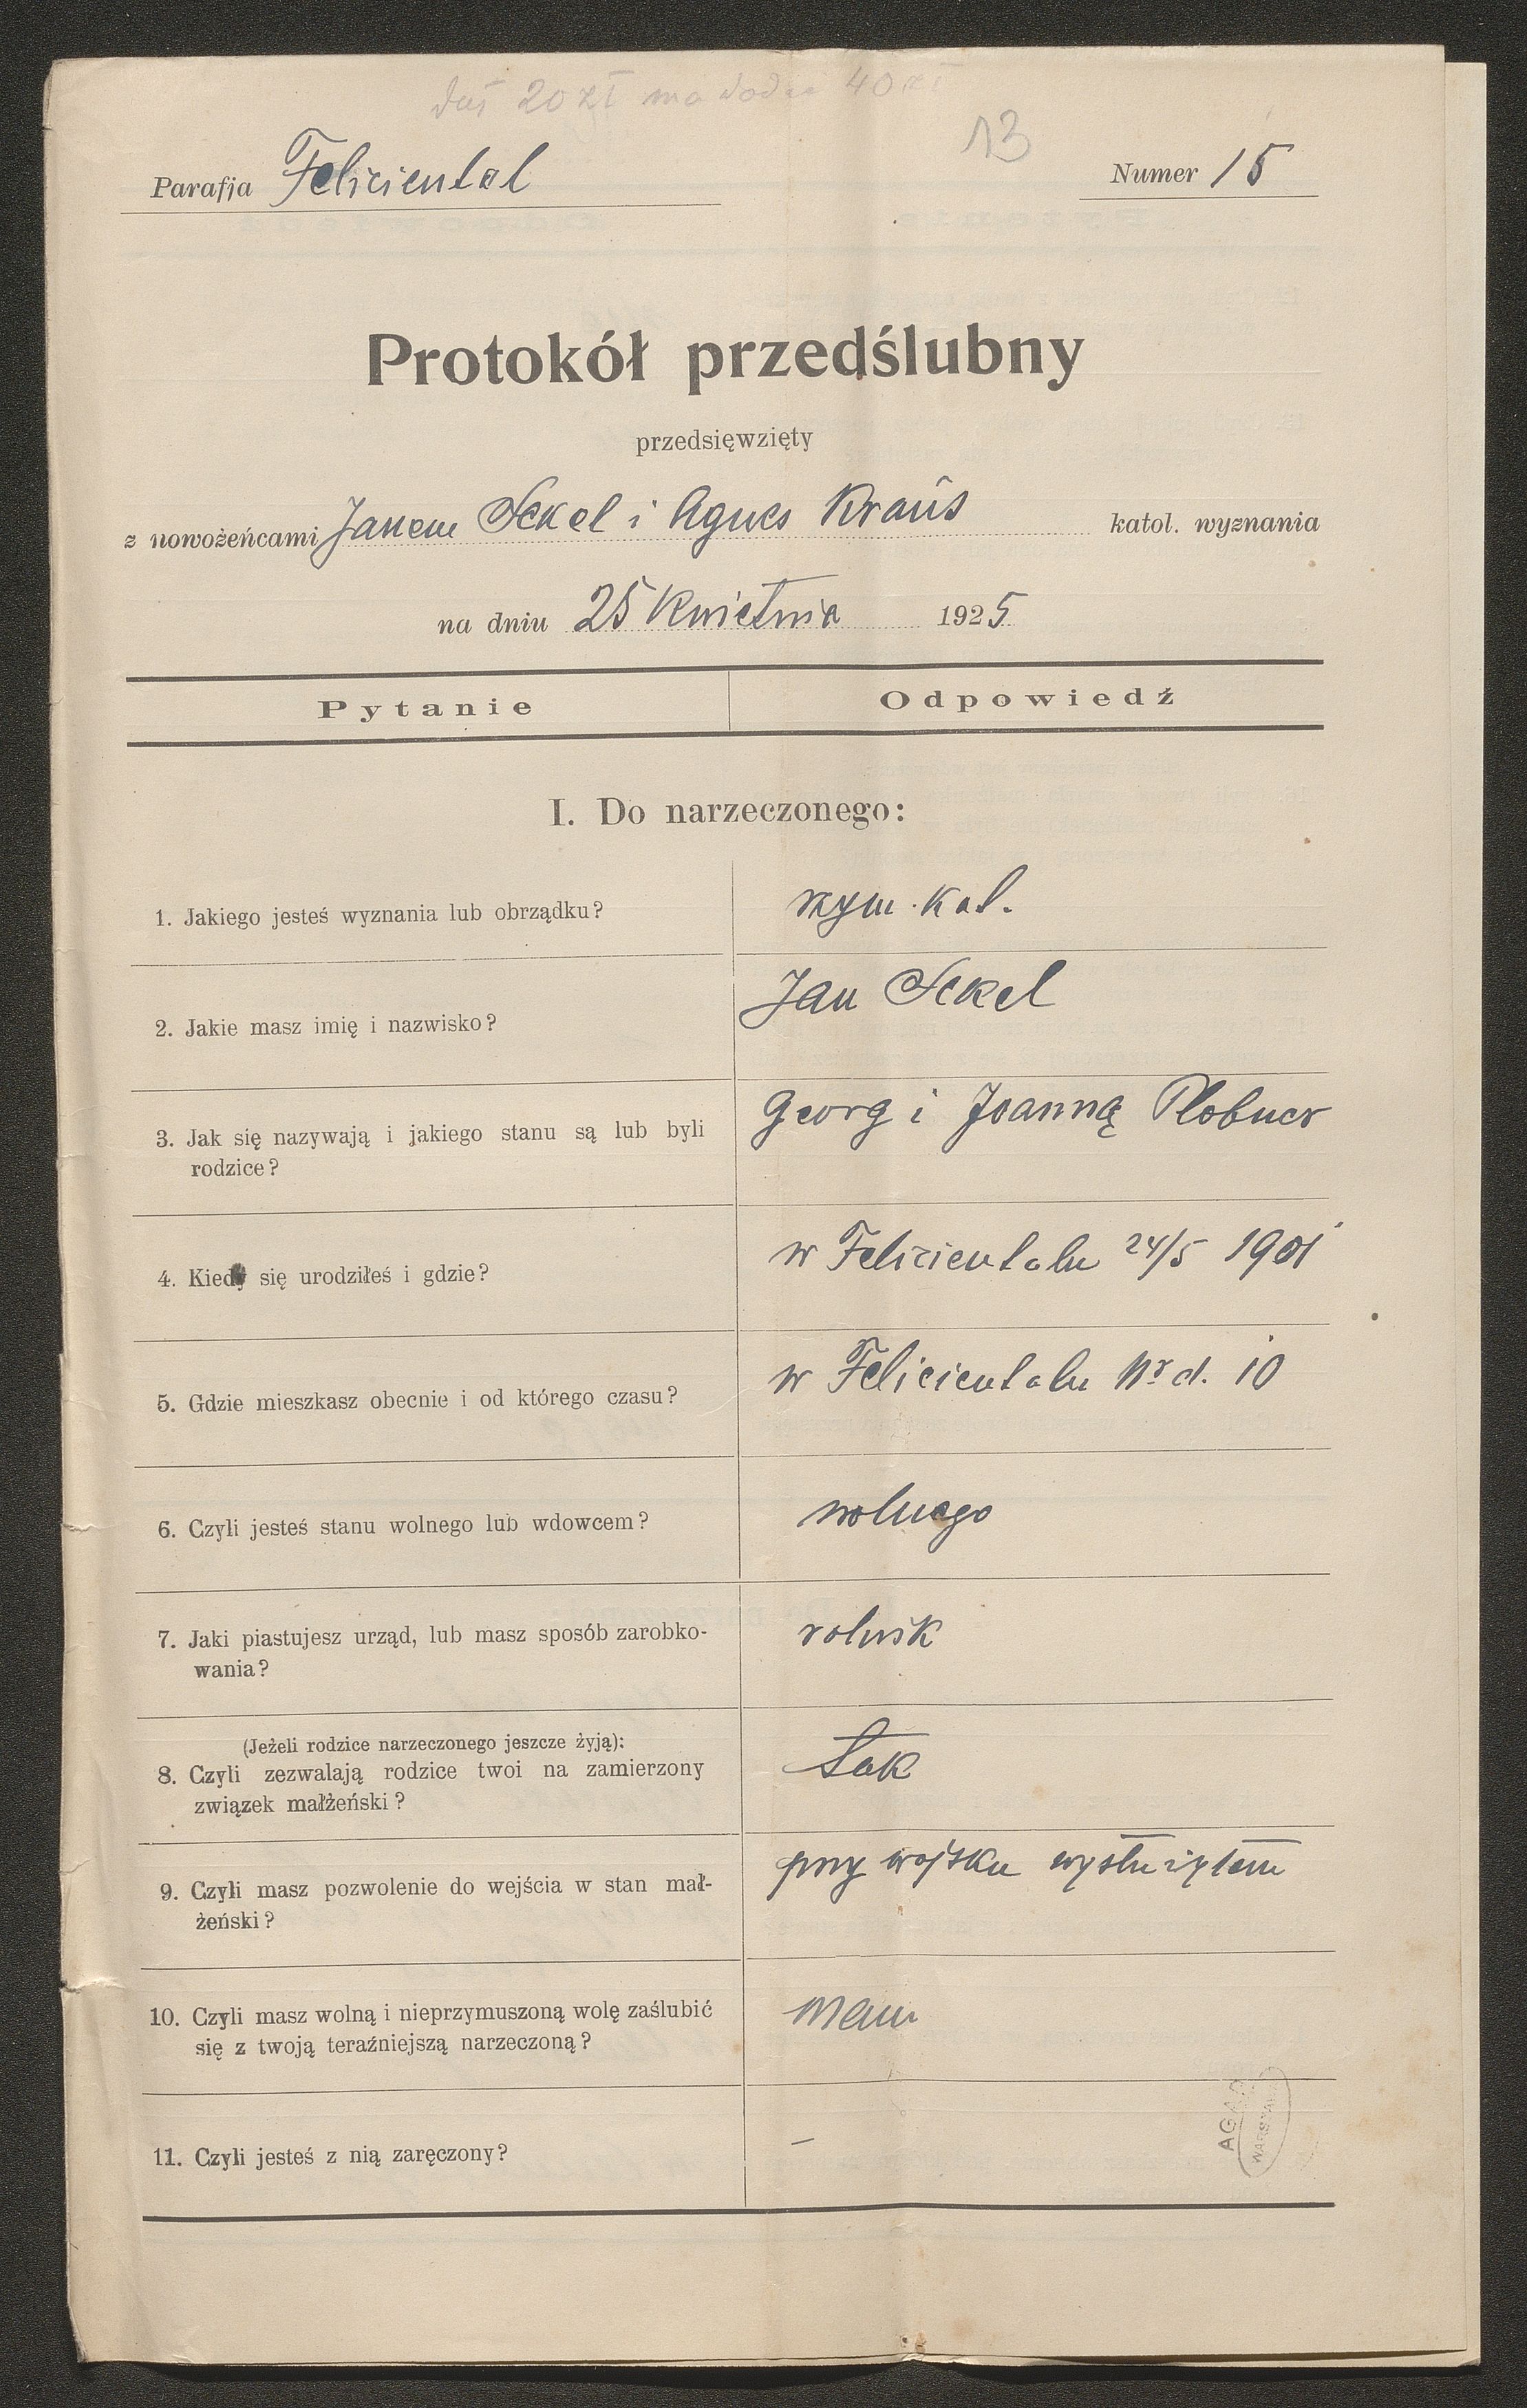 dał 20 zł ma dodać 40 zł
13
Parafja Feliciental
Numer 15
Protokół przedślubny
przedsięwzięty
z nowożeńcami Janem Sekel i Agnes Kraŭs katol. wyznania
na dniu 25 Kwietnia 1925
Pytanie Odpowiedź
I. Do narzeczonego:
1. Jakiego jesteś wyznania lub obrządku? rzym. kat.
2. Jakie masz imię i nazwisko? Jan Sekel
3. Jak się nazywają i jakiego stanu są lub byli
rodzice?
Georg i Joanną Plobner
4. Kiedy się urodziłeś i gdzie? w Felicientalu 24/5 1901
5. Gdzie mieszkasz obecnie i od którego czasu? w Felicientalu Nr d. 10
6. Czyli jesteś stanu wolnego lub wdowcem? wolnego
7. Jaki piastujesz urząd, lub masz sposób zarobko-
wania?
rolnik
(Jeżeli rodzice narzeczonego jeszcze żyją):
8. Czyli zezwalają rodzice twoi na zamierzony
związek małżeński?
tak
9. Czyli masz pozwolenie do wejścia w stan mał-
żeński?
przy wojsku wysłużyłem
10. Czyli masz wolną i nieprzymuszoną wolę zaślubić
się z twoją teraźniejszą narzeczoną?
mam
11. Czyli jesteś z nią zaręczony? –
AGAD
WARSZAWA